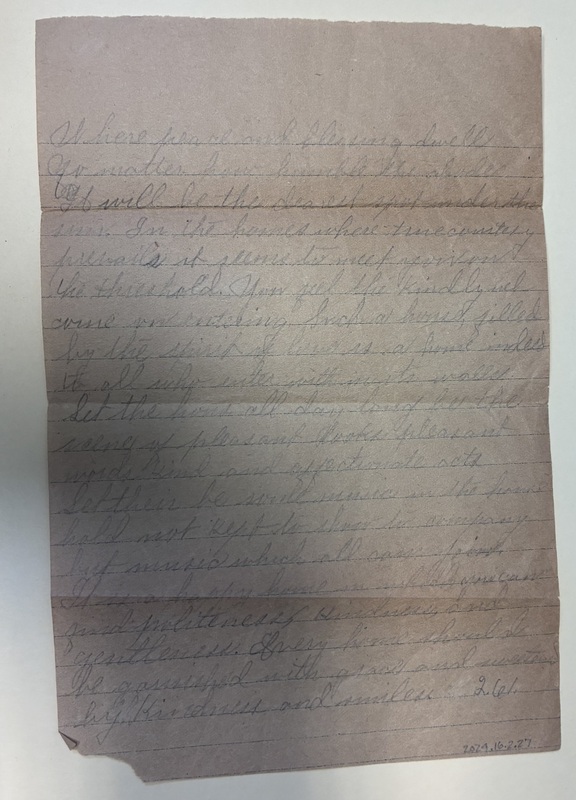 Where peace and blessing dwell
No matter how humble the abode
It will be the dearest spot under the
sun. In the homes where true courtesy
prevails it seems to meet you on
the threshold. You feel the kindly wel
come on entering Such a home filled
by the spirit of love is a home indeed
to all who enter within its walls
Let the hous all day long be the
scene of pleasant looks pleasant
words kind and affectionate acts
Let their be some music in the house
hold not kept to show to company
but music which all can join
It is a happy home in which
and politeness kindness and
gentleness. Every home should
be garnished with grace and
by kindness and smiles 261
2024.16.2.27